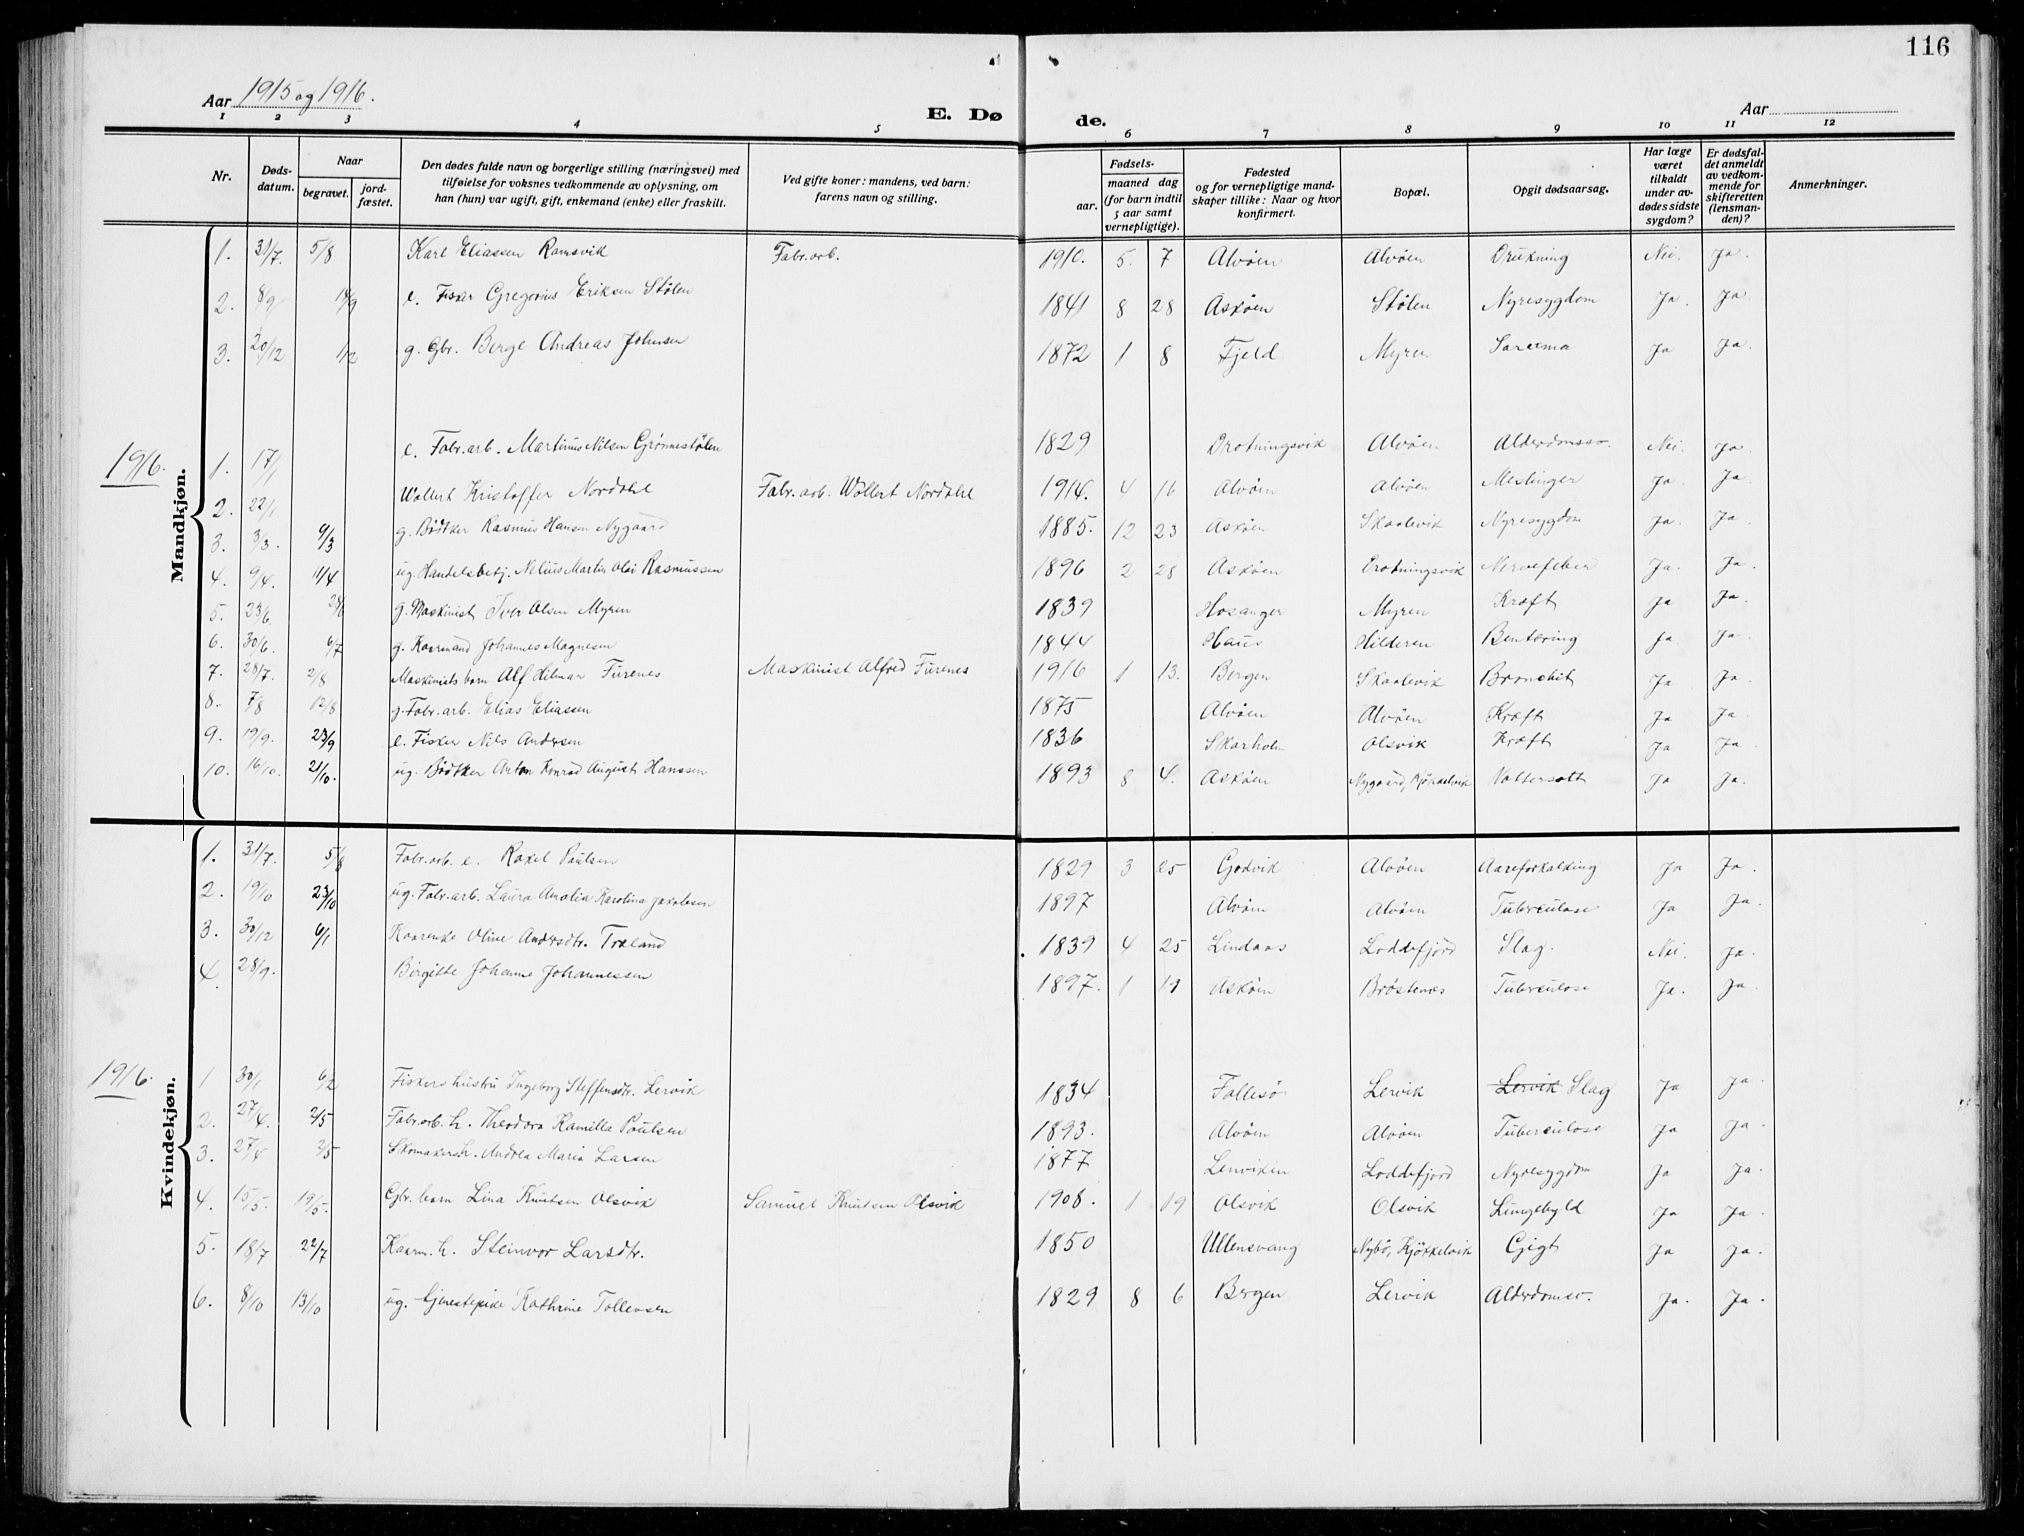 116
Aar 1915 og 1916.
E. Døde.
Aar
1 2 3 4 5 6 7 8 9 10 11 12
Nr.
Døds-datum.
Naar
begravet.
jord-fæstet.
Den dødes fulde navn og borgerlige stilling (næringsvei) med
tilføielse for voksnes vedkommende av oplysning, om
han (hun) var ugift, gift, enkemand (enke) eller fraskilt.
Ved gifte koner: mandens, ved barn:
farens navn og stilling.
Fødsels-
aar.
maaned dag
(for barn indtil
5 aar samt
vernepligtige).
Fødested
og for vernepligtige mand-
skaper tillike: Naar og hvor
konfirmert.
Bopæl.
Opgit dødsaarsag.
Har læge
været
tilkaldt
under av-
dødes sidste
sygdom?
Er dødsfal-
det anmeldt
av vedkom-
mende for
skifteretten
(lensman-
den)?
Anmerkninger.
Mandkjøn.
1. 31/7. 5/8 Karl Eliassen Ramsvik Fabr.arb. 1910. 5. 7 Alvøen Alvøen Drukning Nei. Ja.
2. 8/9 14/9 e. Fisker Gregorius Eriksen Stølen 1841 8 28 Askøen Stølen Nyresygdom Ja. Ja
3. 20/12 g. Gbr. Berge Andreas Johnsen 1872 1 8 Fjeld Myren Sarcoma Ja Ja.
1916.
1. 17/1 e. Fabr.arb. Martinus Nilsen Grønnestølen 1829 Drotningsvik Alvøen Alderdomssv. Nei. Ja
2. 22/1 Wollert Kristoffer Nordahl Fabr.arb. Wollert Nordahl 1914. 4 16 Alvøen Alvøen Meslinger Ja. Ja.
3. 3/3. 9/3 g. Bødtker Rasmus Hansen Nygaard 1885. 12 23 Askøen Skaalevik Nyresygdom Ja. Ja
4. 9/4. 11/4 ug. Handelsbetj. Nelius Martin Olai Rasmussen 1896 2 28 Askøen Drotningsvik Nervefeber Ja. Ja.
5. 23/6. 28/6 g. Maskinist Iver Olsen Myren 1839 Hosanger Myren Kræft Ja Ja.
6. 30/6. 6/7 g. Kaarmand Johannes Magnesen 1844 Haus Hilderen Bentæring Ja Ja.
7. 28/7. 2/8 Maskinists barn Alf Hilmar Furenes Maskinist Alfred Furenes 1916 1 13. Bergen Skaalevik Bronchit Ja Ja.
8. 7/8 12/8 g. Fabr.arb. Elias Eliassen 1875 Alvøen Alvøen Kræft Ja Ja.
9. 19/9. 23/9 e. Fisker Nils Andersen 1836 Skarholm Olsvik Kræft Ja Ja.
10. 16/10. 21/10. ug. Bødtker Anton Konrad August Hanssen 1893 8 4. Askøen Nygaard, Kjøkkelvik Vattersott Ja Ja.
Kvindekjøn.
1. 31/7. 5/8 Fabr.arb. e. Rakel Paulsen 1829 3 25 Godvik Alvøen Aareforkalkning Ja Ja.
2. 19/10 23/10 ug. Fabr.arb. Laura Amalia Karolina Jakobsen 1897 Alvøen Alvøen Tuberculose Ja Ja.
3. 30/12 6/1 Kaarenke Oline Andersdtr. Træland 1839 4 25 Lindaas Loddefjord Slag. Nei. Ja.
4. 28/9. Birgitte Johanne Johannessen 1897. 1 Askøen Brøstenes Tuberculose Ja. Ja.
1916.
1 30/1 6/2 Fiskers hustru Ingeborg Steffensdtr. Lervik 1834 Follesø Lervik Lervik Slag Ja Ja.
2. 27/4. 2/5 Fabr.arb. h. Theodora Kamilla Paulsen 1893. Alvøen Alvøen Tuberculose Ja Ja.
3. 27/4 2/5 Skomakersh. Andrea Maria Larsen 1877 Lenvikin Loddefjord Nyresygdom Ja Ja.
4. 15/5. 19/5. Gbr. barn Lina Knutsen Olsvik Samuel Knutsen Olsvik 1908. 1 19 Olsvik Olsvik Lungebyld Ja Ja.
5. 18/7 22/7 Kaarm. h. Steinvor Larsdtr. 1850 Ullensvang Nybø, Kjøkkelvik Gigt Ja Ja.
6. 8/10 13/10 ug. Tjenestepike Kathrine Tollevsen 1829 8 6 Bergen Lervik Alderdomsv. Ja. Ja.